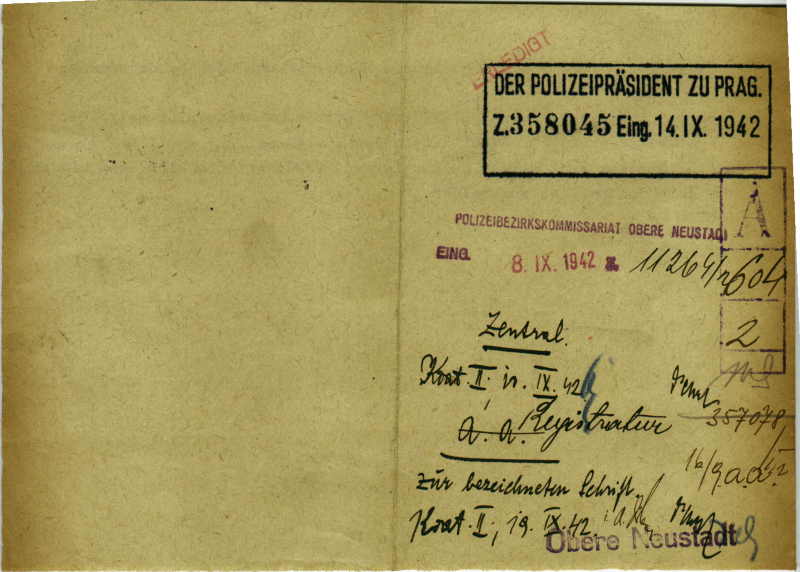 ERLEDIGT
DER POLIZEIPRÄSIDENT ZU PRAG.
Z.358045 Eing. 14. IX. 1942
A
POLIZEIBEZIRKSKOMMISSARIAT OBERE NEUSTADT
EING. 8. IX. 1942 Z. 11264/
604
2
Zentral.
IX. 42
357078
a. a. Registratur
16/9. a.a.
Zur bezeichneten Schrift.
IX. 42.
Obere Neustadt